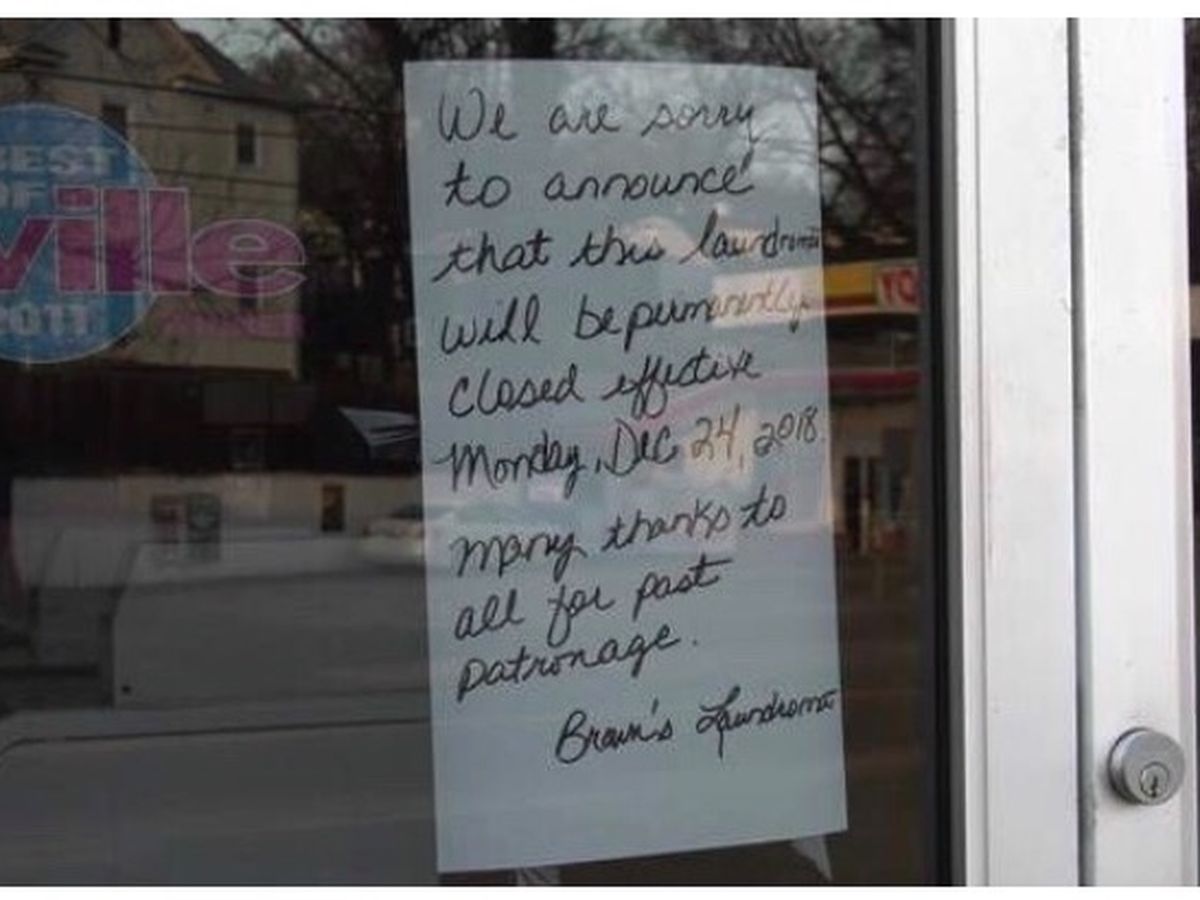 BEST
OF
ville
2011
We are sorry
to announce
that this laundroma
will be permanently
closed effective
Monday, Dec 24, 2018
Many thanks to
all for past
patronage.
Brown's Laundroma
YO